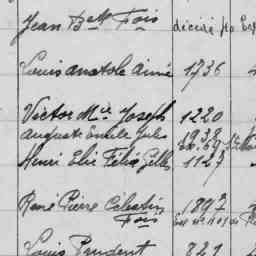 Jean Bte Fois décédé
Louis Anatole Aimé 1736
Victor Mie Joseph 1220
Auguste Emile Jules 1938
Henri Elie Félix Gilles 1127
René Pierre Célestin 1897
Fois
Louis Prudent 821